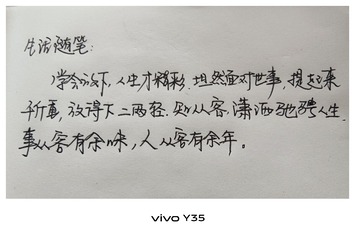 生活随笔:
学会放下,人生才精彩.坦然面对世事,提起来
千斤重,放得下二两轻.处从容,潇洒驰骋人生.
事从容有余味,人从容有余年。
vivo Y35